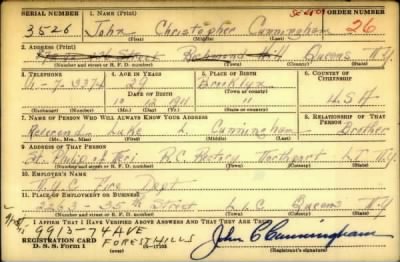 SERIAL NUMBER 1. NAME (Print) ORDER NUMBER
3526 John Christopher Cunningham 26
(First) (Middle) (Last)
2. ADDRESS (Print)
Street Richmond Hill Queens N.Y.
(Number and street or R. F. D. number) (Town) (County) (State)
3. TELEPHONE 4. AGE IN YEARS 5. PLACE OF BIRTH 6. COUNTRY OF CITIZENSHIP
29 Brooklyn
DATE OF BIRTH (Town or county)
N.Y. U.S.A.
(Exchange) (Number) (Mo.) (Day) (Yr.) (State or country)
7. NAME OF PERSON WHO WILL ALWAYS KNOW YOUR ADDRESS 8. RELATIONSHIP OF THAT PERSON
Reverend Luke L. Cunningham Brother
(Mr., Mrs., Miss) (First) (Middle) (Last)
9. ADDRESS OF THAT PERSON
St. Philip Neri R.C. Rectory Northport L.I. N.Y.
(Number and street or R. F. D. number) (Town) (County) (State)
10. EMPLOYER'S NAME
N.Y.C. Fire Dept
11. PLACE OF EMPLOYMENT OR BUSINESS
35th Street L.I.C. Queens N.Y.
(Number and street or R. F. D. number) (Town) (County) (State)
I AFFIRM THAT I HAVE VERIFIED ABOVE ANSWERS AND THAT THEY ARE TRUE.
9913-74 AVE
REGISTRATION CARD
FOREST HILLS
D. S. S. Form 1 John C Cunningham
(Registrant's signature)